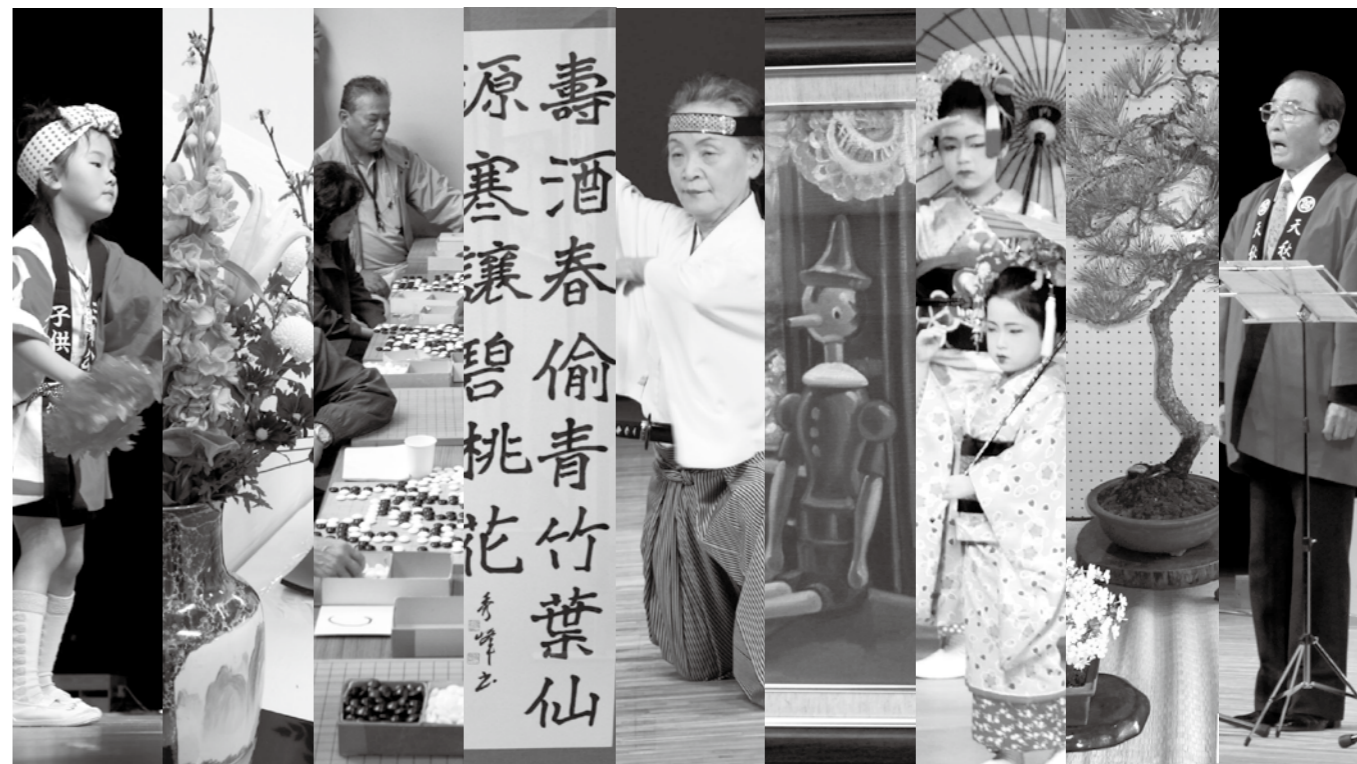 子供
壽酒春偷青竹葉仙
源寒讓碧桃花
秀峰书
天秋